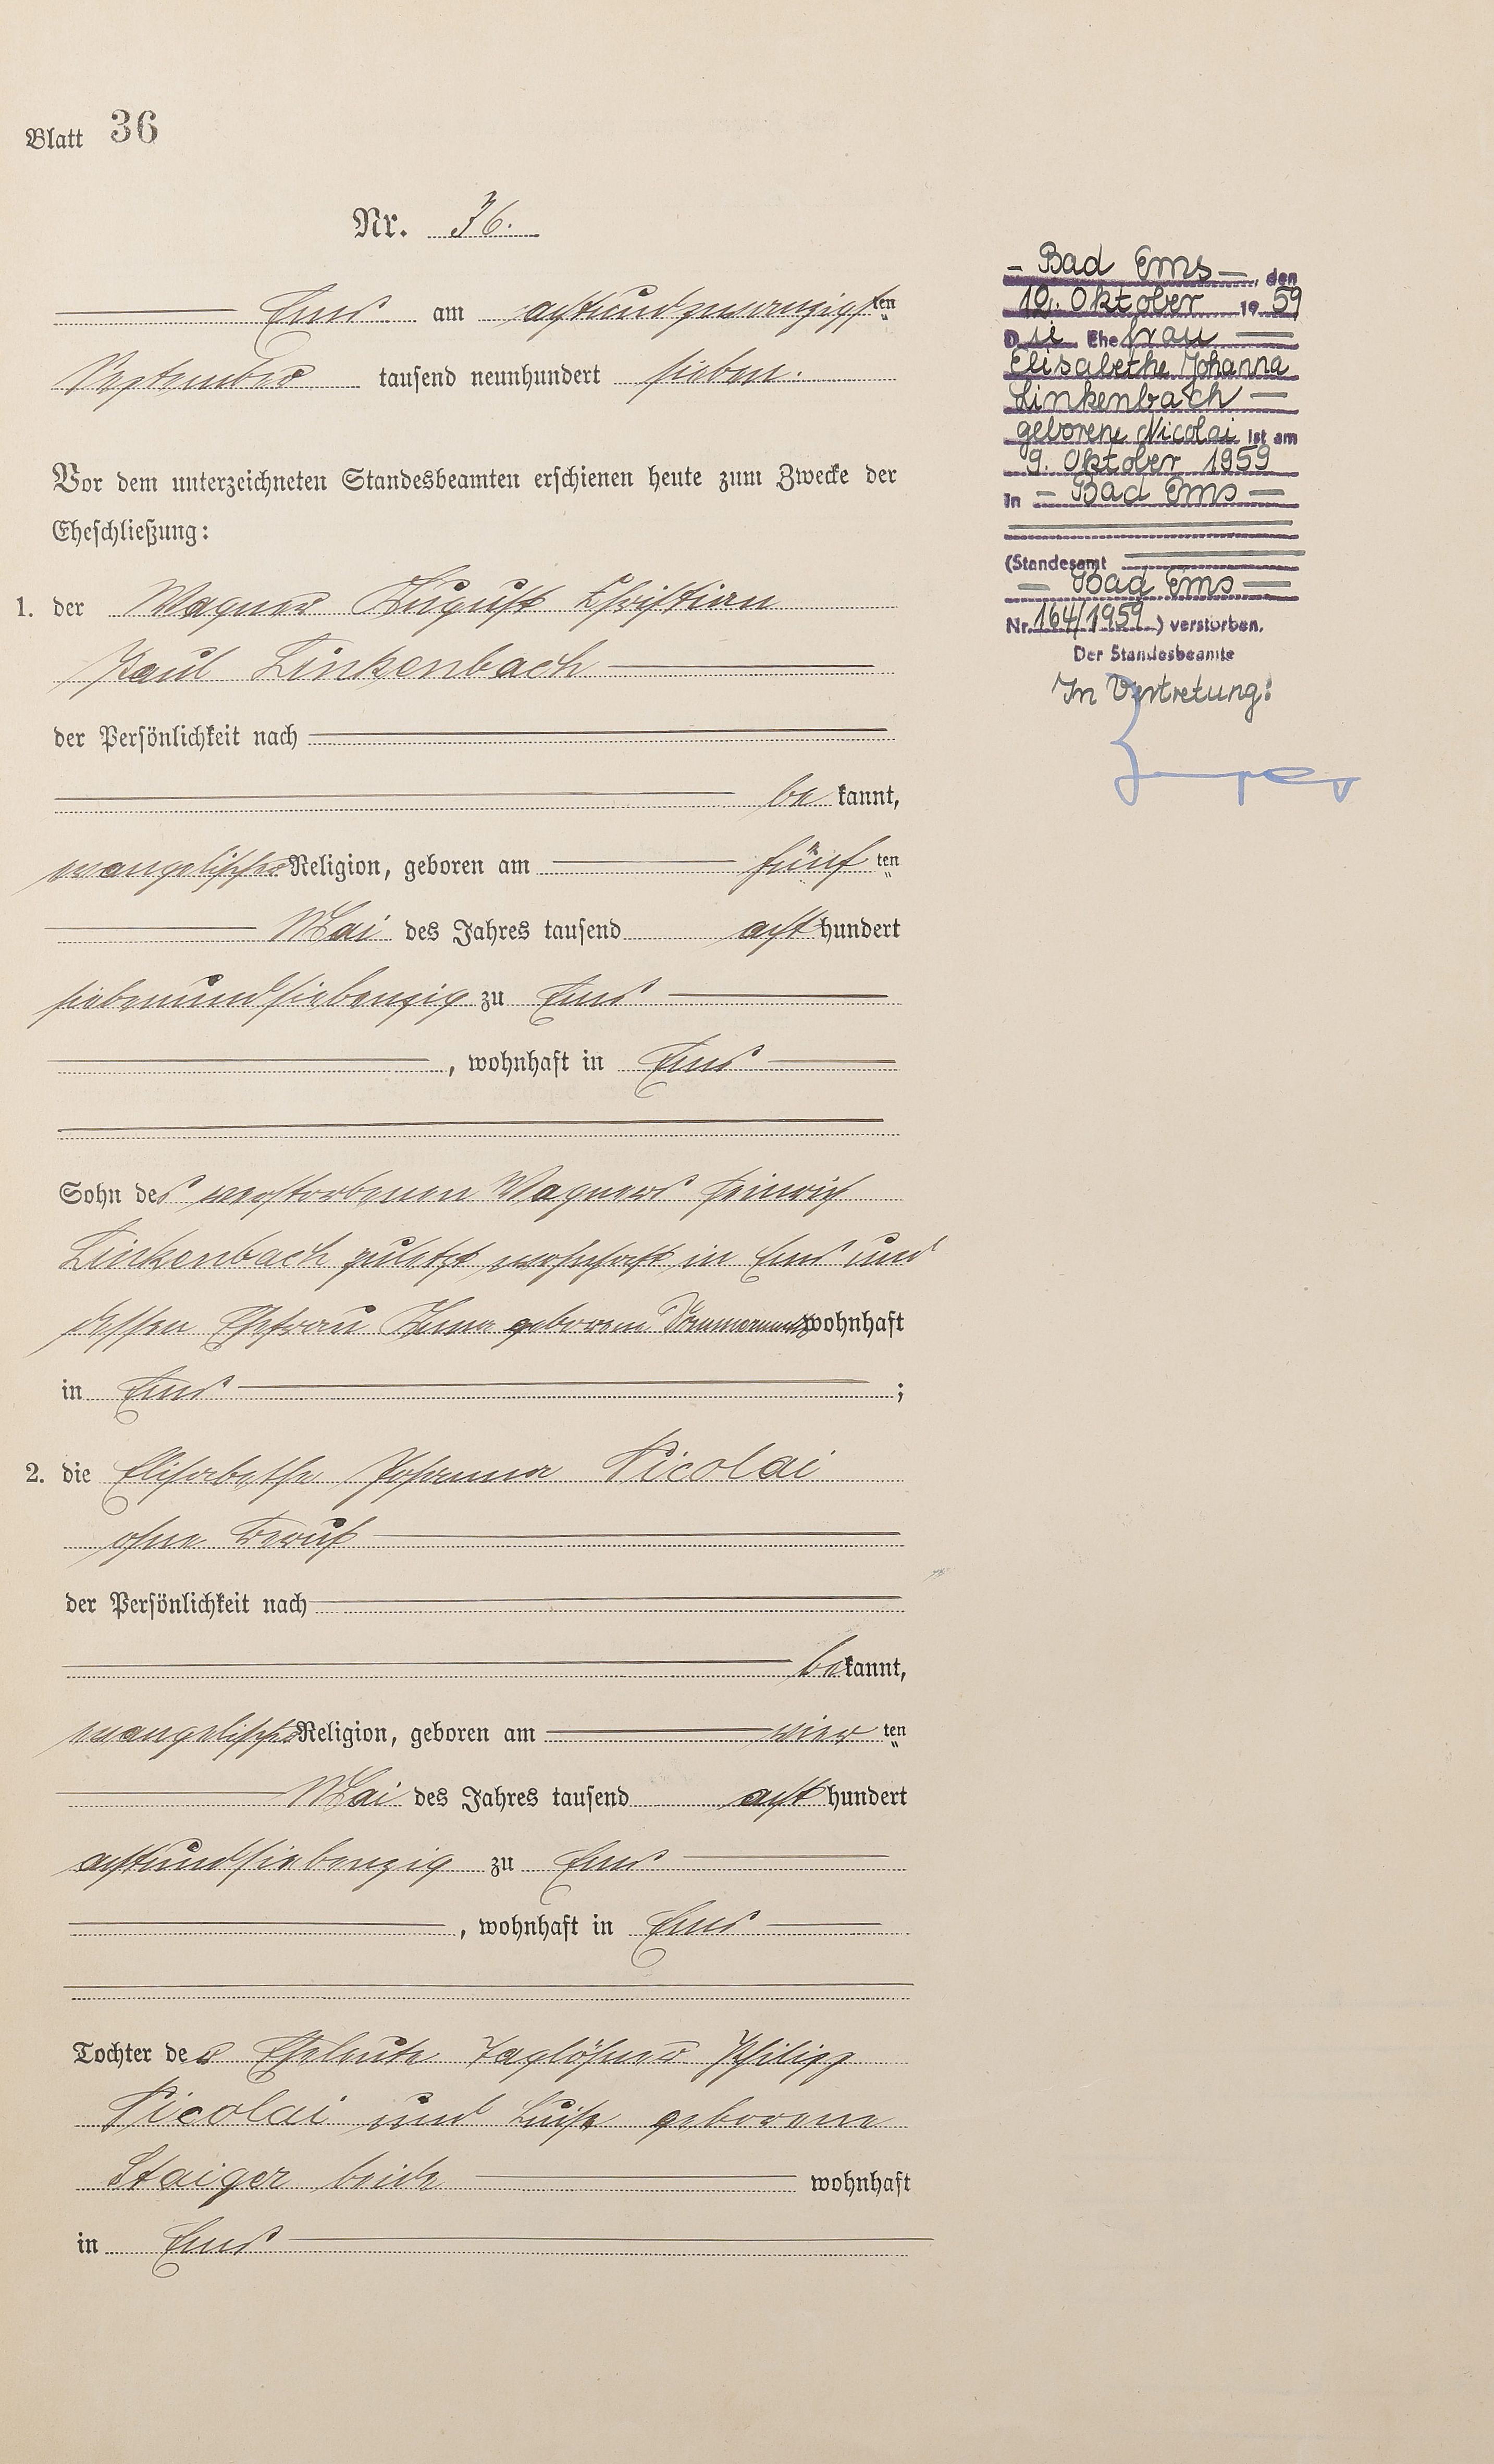 Blatt 36
Nr. 36.
Ems am achtundzwanzigsten
September tausend neunhundert sieben.
Vor dem unterzeichneten Standesbeamten erschienen heute zum Zwecke der
Eheschließung:
1. der Wagner August Christian
Paul Linkenbach
der Persönlichkeit nach
be kannt,
evangelischer Religion, geboren am fünf ten
Mai des Jahres tausend acht hundert
siebenundsiebenzig zu Ems
, wohnhaft in Ems
Sohn des verstorbenen Wagners Heinrich
Linkenbach zuletzt wohnhaft in Ems und
dessen Ehefrau Anna geborene wohnhaft
in Ems ;
2. die Elisabethe Johanna Nicolai
ohne Beruf
der Persönlichkeit nach
be kannt,
evangelischer Religion, geboren am vier ten
Mai des Jahres tausend acht hundert
achtundsiebenzig zu Ems
, wohnhaft in Ems
Tochter der Eheleute Taglöhner Philipp
Nicolai und Luise geborene
Staiger beide wohnhaft
in Ems
- Bad Ems -, den
12. Oktober 1959
Die Ehefrau
Elisabethe Johanna
Linkenbach
geborene Nicolai ist am
9. Oktober 1959
in - Bad Ems -
(Standesamt
- Bad Ems -
Nr. 164/1959) verstorben.
Der Standesbeamte
In Vertretung: